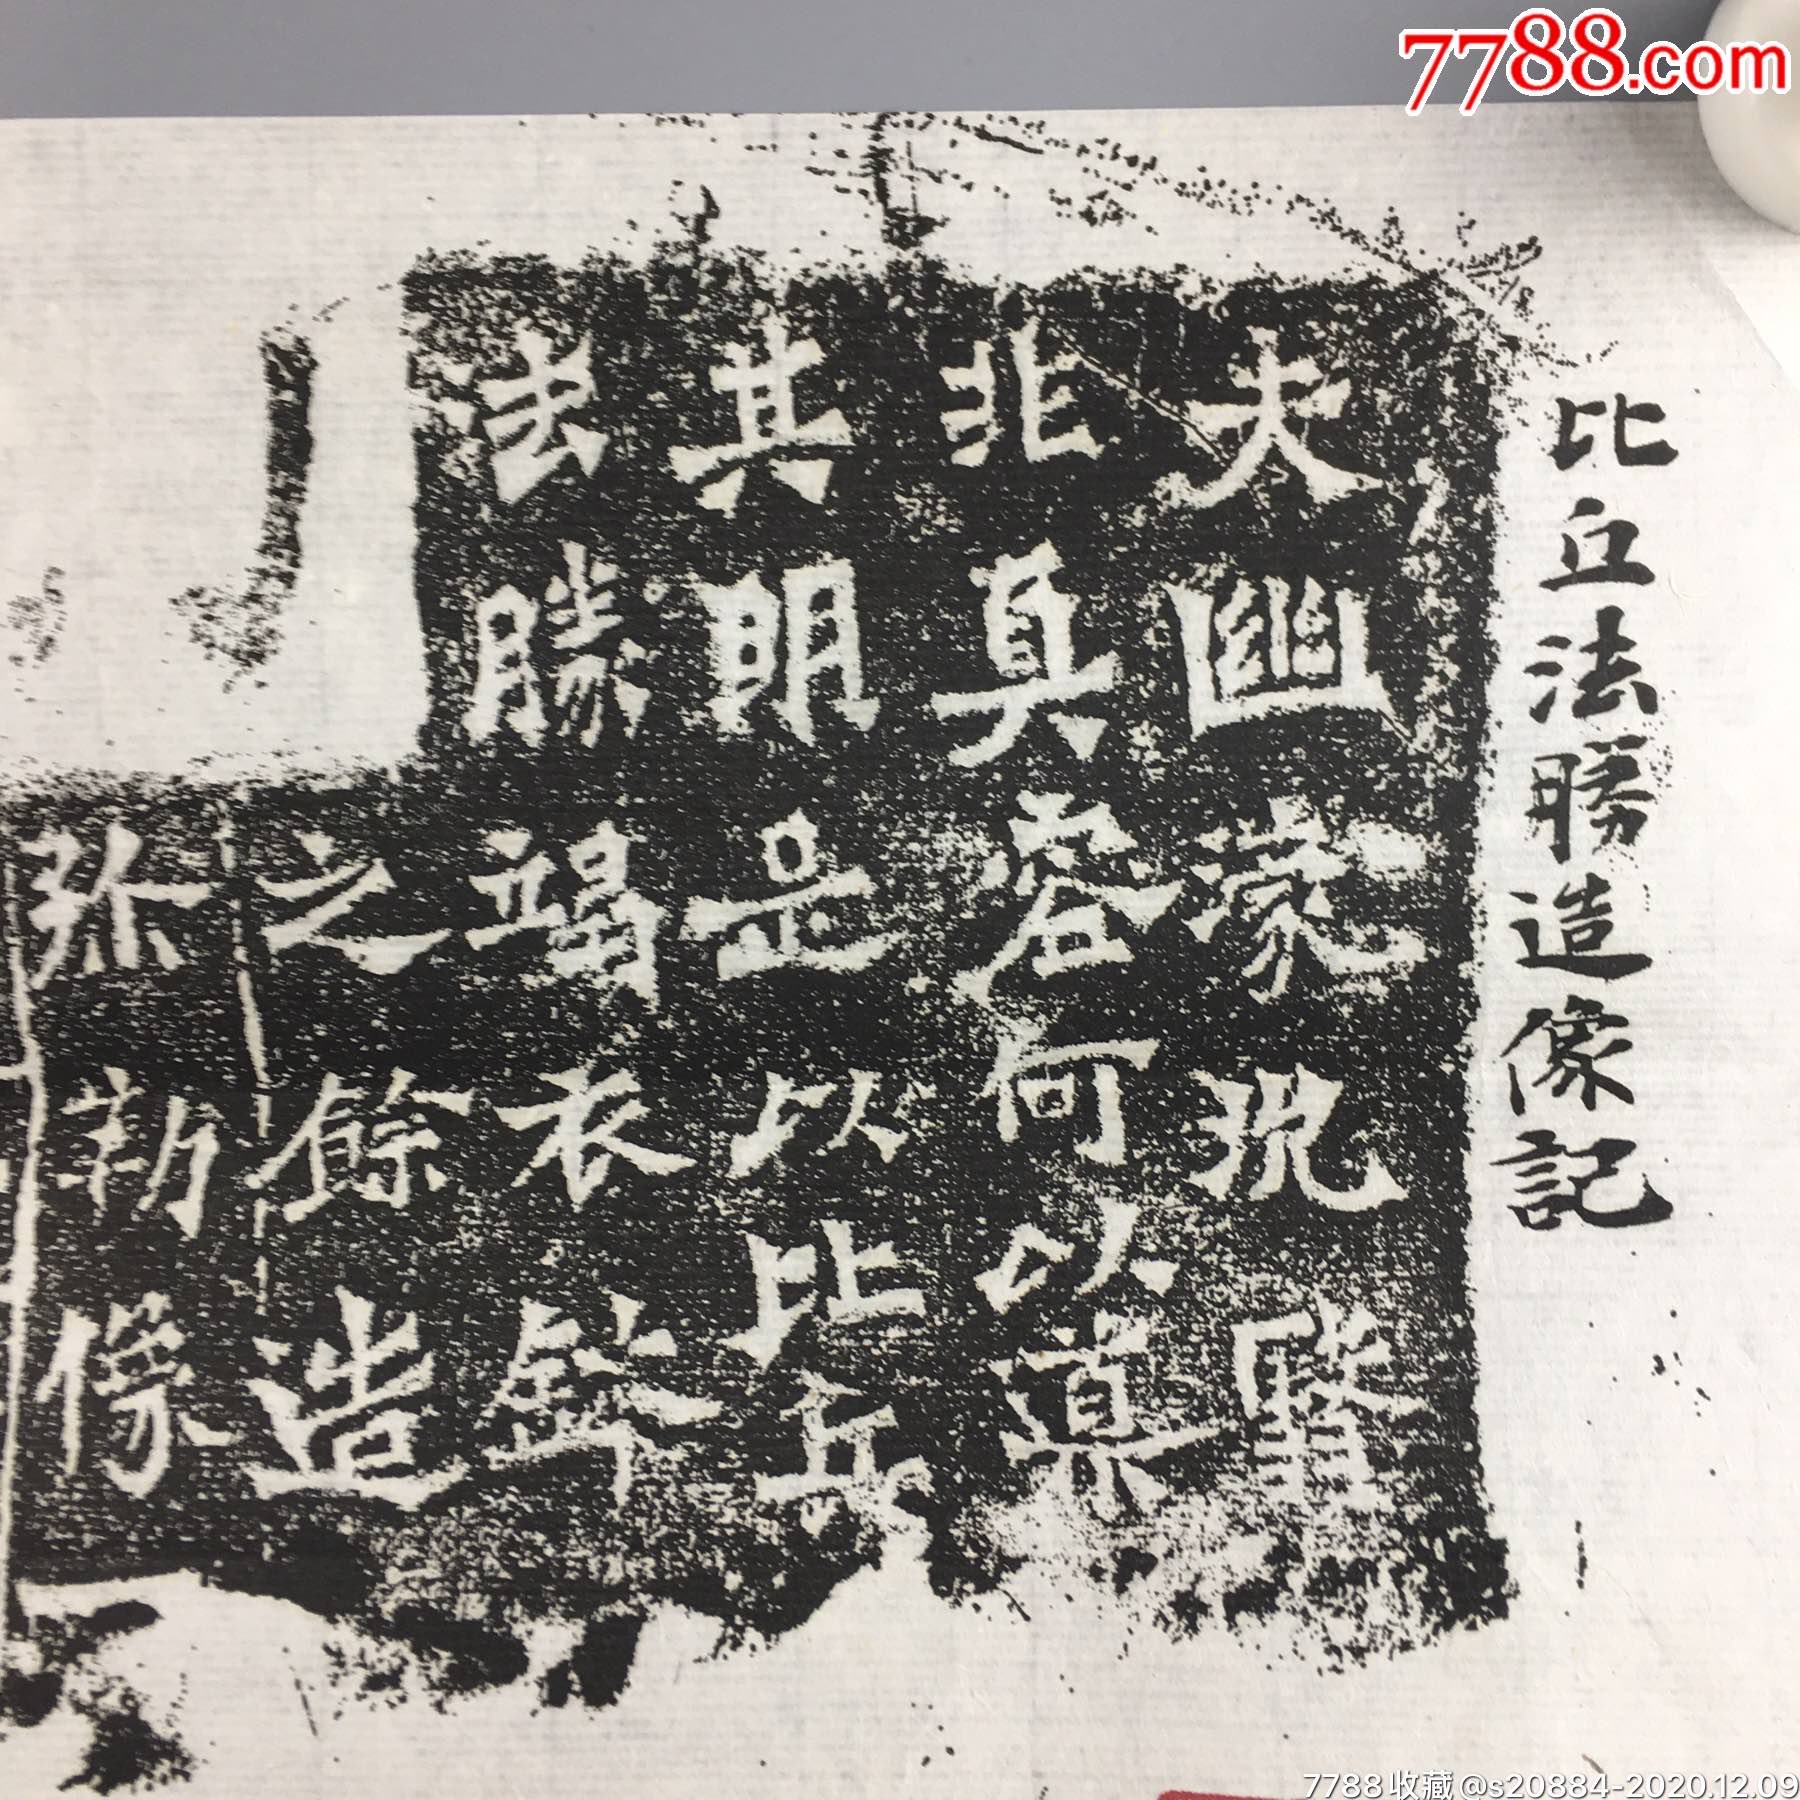 7788.com
比丘法勝造像記
夫幽
非真容何以導
其明是以比丘
法勝竭衣鉢
之餘造
弥勒像
7788收藏@s20884-2020.12.09